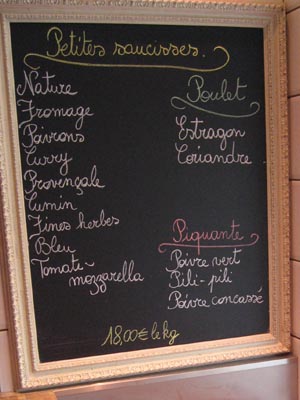 Petites saucisses.
Nature
Fromage
Poivrons
Curry
Provençale
Cumin
Fines herbes
Bleu
Tomate-
mozzarella
Poulet
Estragon
Coriandre
Piquante
Poivre vert
Pili-pili
Poivre concassé
18,00€ le kg